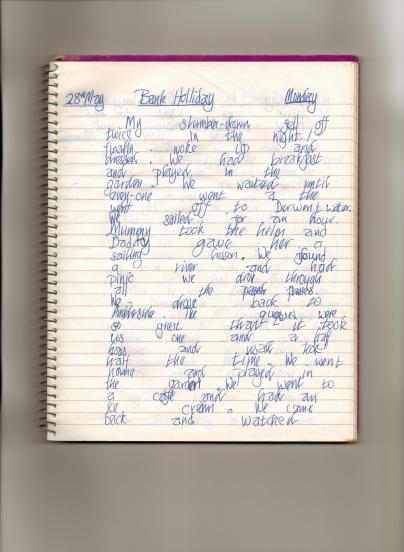 28th May Bank Holliday Monday
My slumber-down fell off
twice in the night. I
finaly woke up and
dressed. We had breakfast
and played in the
garden. We waited until
every-one went a the
went off to Derwent water.
We sailed for an hour.
Mummy took the helm and
Daddy gave her a
sailing lesson. We found
a river and had
picnic we drove through
all the passes.
We drove back to
Ambleside. The queues were
so great that it took
us one and a half
hours and usualy took
half the time. We went
home and played in
the garden. We went to
a cafe and had an
ice cream. We came
back and watched